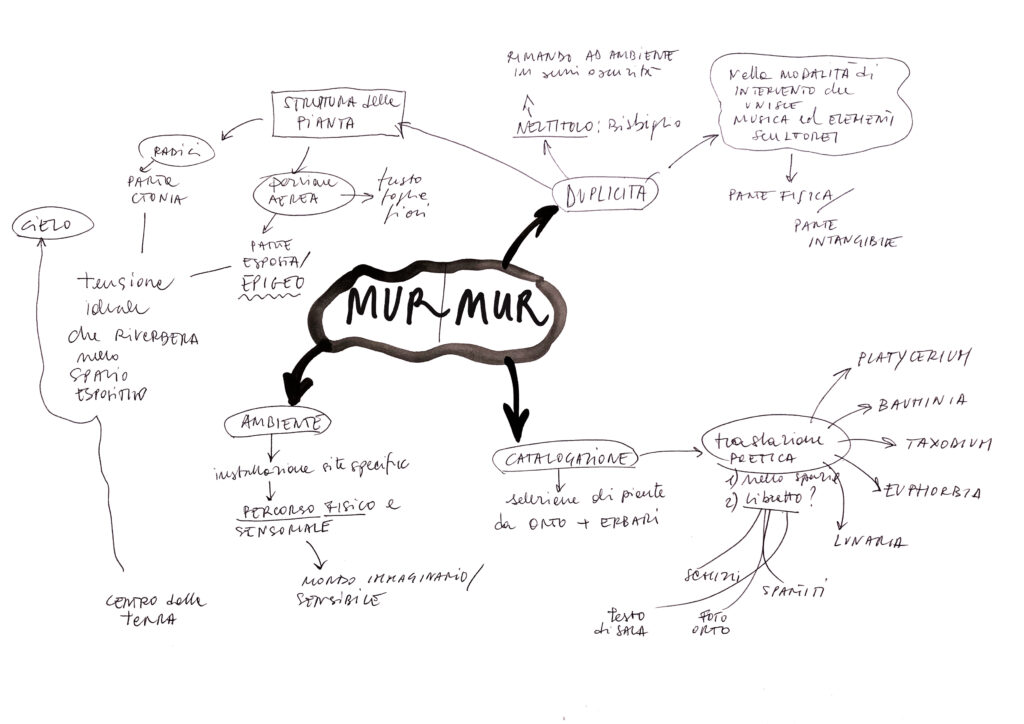 RIMANDO AD AMBIENTE
in semi oscurità
NEL TITOLO: Bisbiglio
Nella MODALITÀ di
INTERVENTO che
UNISCE
MUSICA ed ELEMENTI
SCULTOREI
PARTE FISICA/
PARTE
INTANGIBILE
DUPLICITÀ
STRUTTURA della
PIANTA
RADICI
PARTE
CTONIA
porzione
AEREA
fusto
foglie
fiori
PARTE
ESPOSTA/
EPIGEO
CIELO
tensione
ideale
che RIVERBERA
nello
SPAZIO
ESPOSITIVO
CENTRO della
TERRA
MUR MUR
AMBIENTE
installazione site specific
PERCORSO FISICO e
SENSORIALE
MONDO IMMAGINARIO/
SENSIBILE
CATALOGAZIONE
selezione di piante
da ORTO + ERBARI
traslazione
POETICA
1) nello spazio
2) libretto?
PLATYCERIUM
BAUHINIA
TAXODIUM
EUPHORBIA
LUNARIA
SCHIZZI
SPARTITI
testo
di SALA
FOTO
ORTO